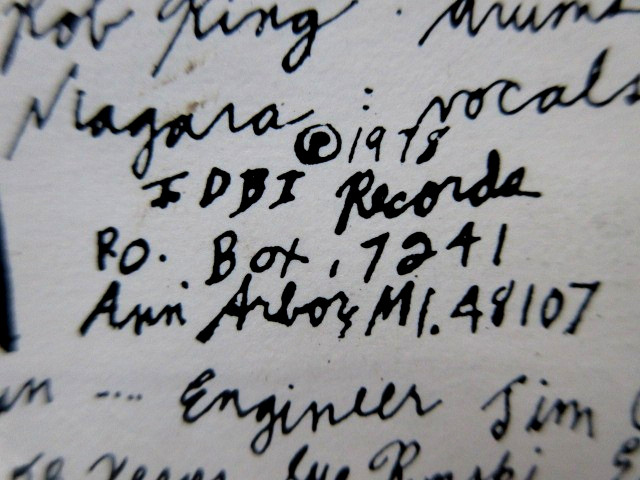 Rob King . drums
Niagara : vocals
℗ 1978
IDBI Records
P.O. Box, 7241
Ann Arbor, MI. 48107
.... Engineer Jim